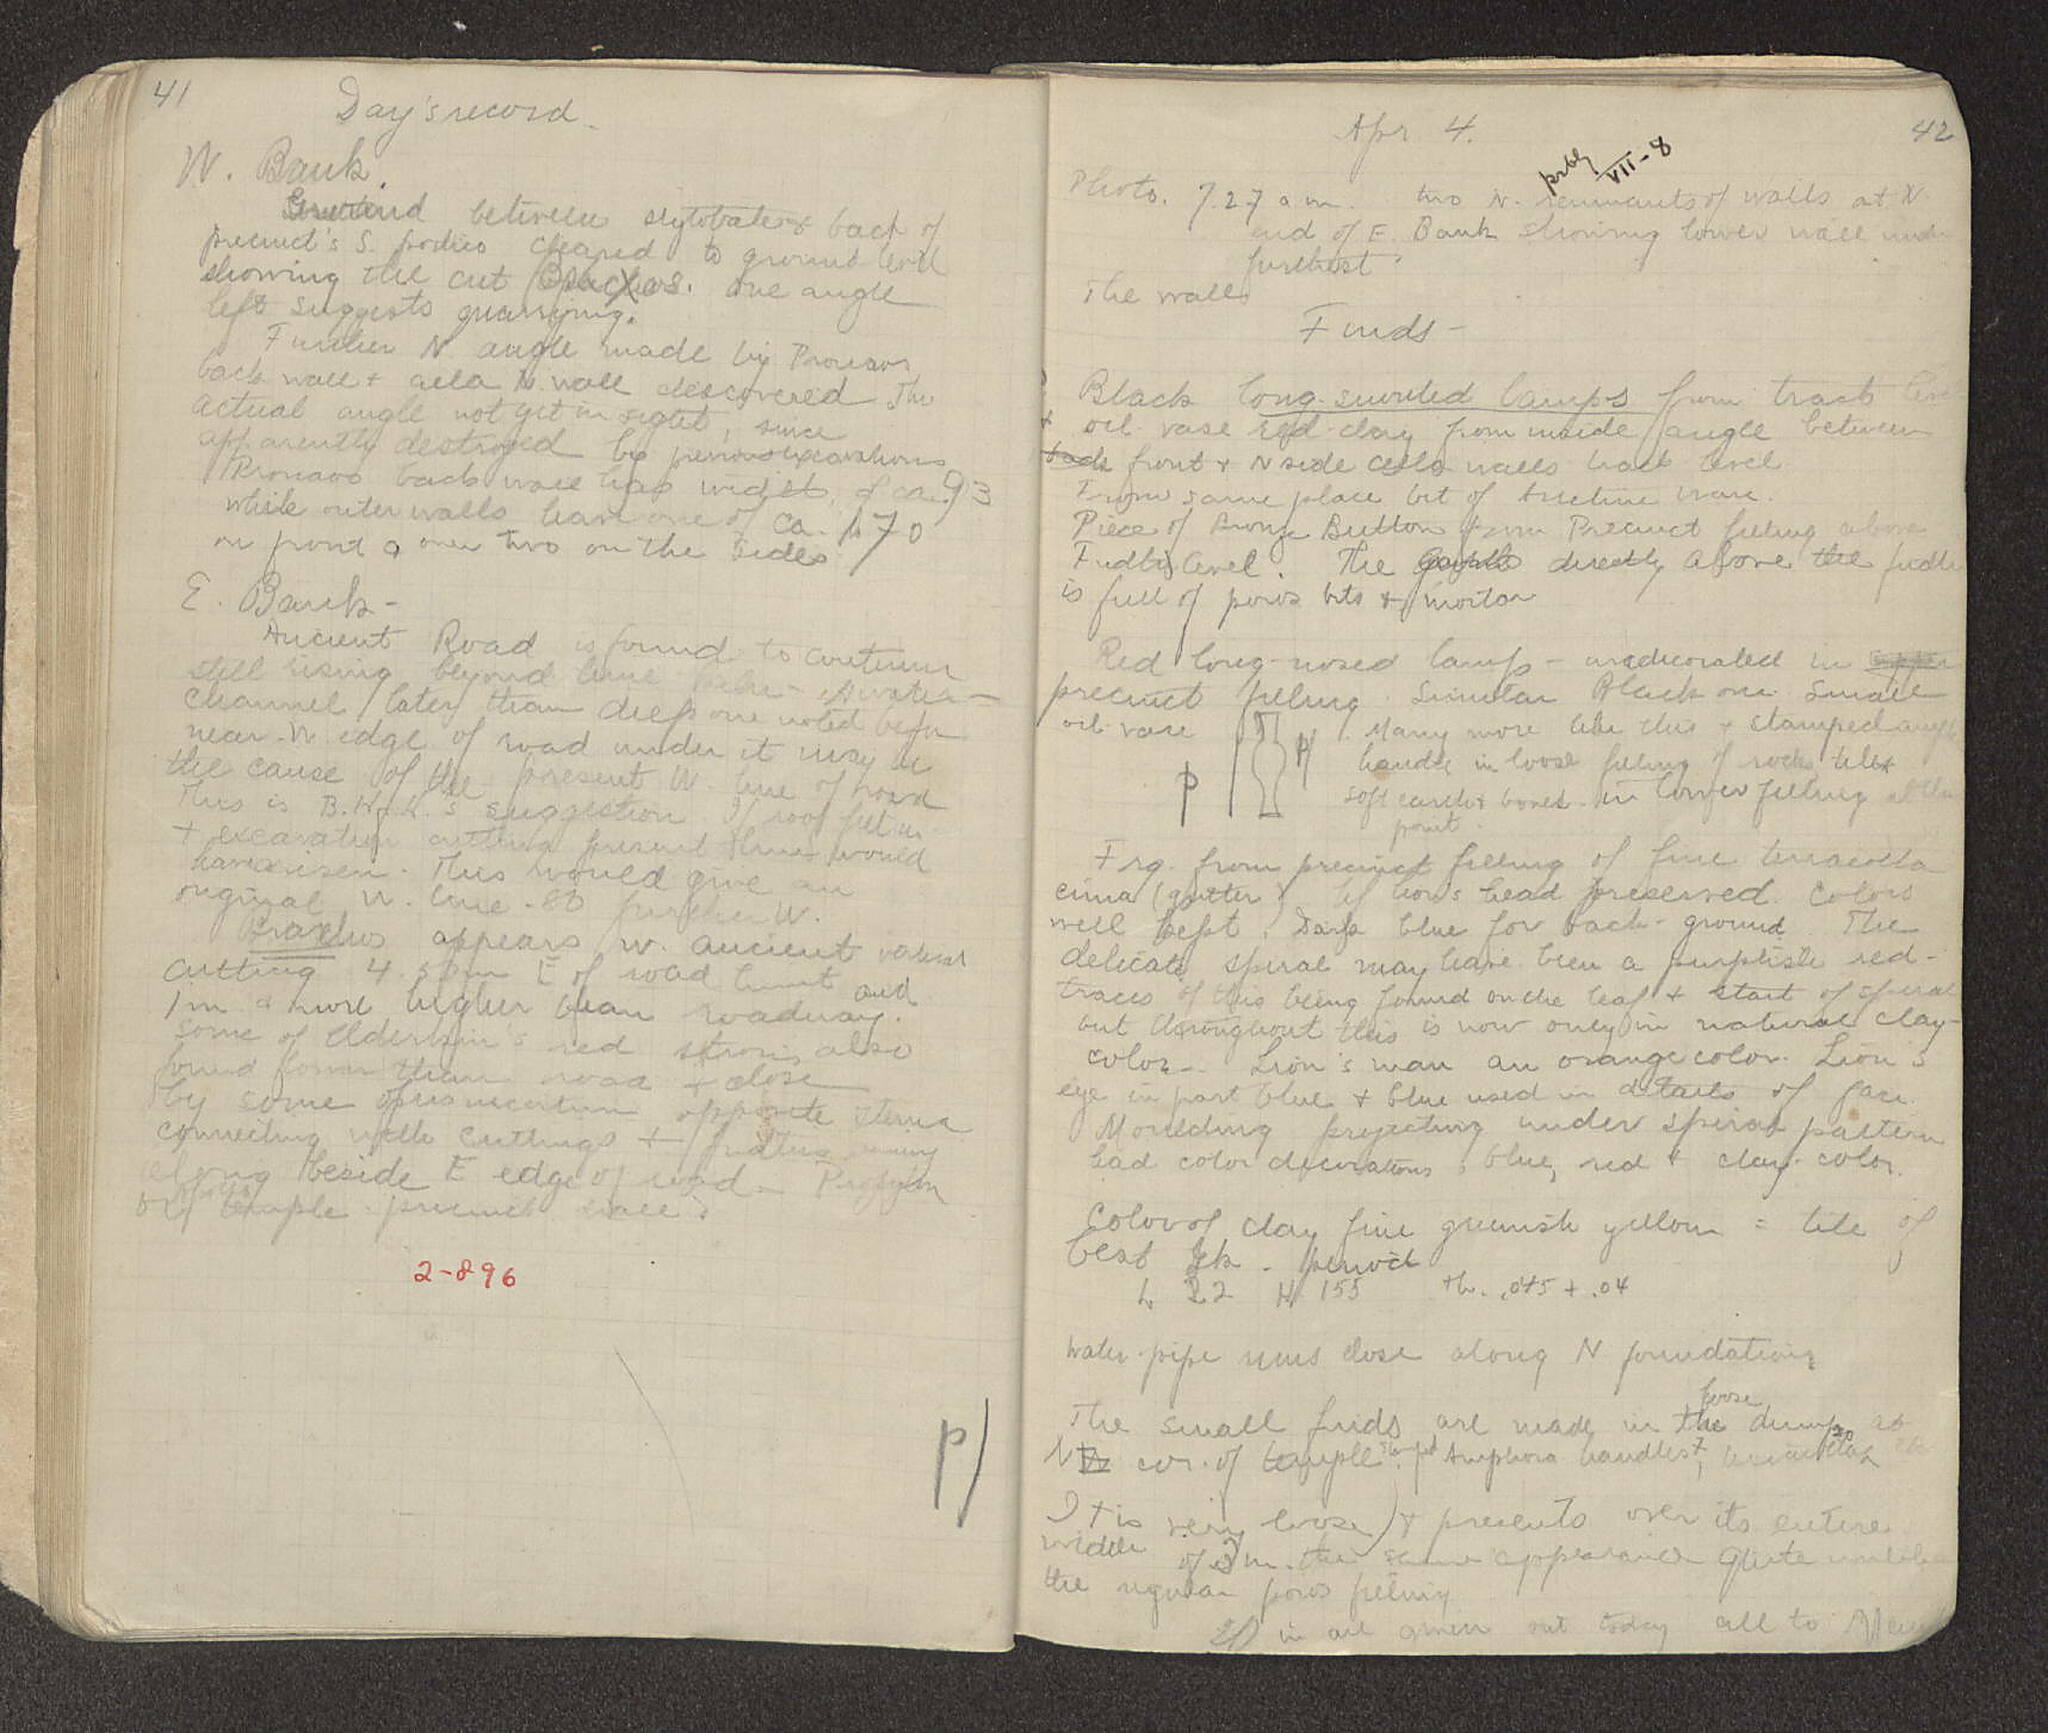 41
Day's record
W. Bank.
Ground between stylobate & back of
precinct's S. porticо cleared to ground level
showing the cut Brachos. one angle
left suggests quarrying.
Further N angle made by Pronaos
back wall + cella N. wall discovered. The
actual angle not yet in sight, since
apparently destroyed by previous excavations
Pronaos back wall has width of ca. 93
while outer walls have one of ca. 1.70
on front & over two on the sides
E. Bank -
Ancient Road is found to continue
still rising beyond line water-
channel later than deep one noted before
near W edge of road under it may be
the cause of the present W. line of road
This is B.H.H.'s suggestion. If roof fell in
+ excavation cutting present line would
have risen. This would give an
original W. line .80 further W.
Brachos appears w. ancient vertical
cutting 4.50m E of road limit and
1m & more higher than roadway.
Some of Elderkin's red also
found lower than road + close
by some opposite
connecting with cuttings + fndtns running
along beside E edge of road - Propylon
of temple precinct wall?
2-896
P)
Apr 4.
42
prbly VII-8
Photo. 7.27 a m. two N. remnants of walls at N
end of E. Bank showing lower wall under
furthest.
The wall
Finds -
Black long-snouted lamps from track level
oil vase red clay from inside angle between
back front + N side cella walls track level
From same place bit of Arretine ware.
Piece of Bronze Button from Precinct filling above
Fndtn level. The earth directly above the fndtn
is full of poros bits + mortar
Red long-nosed lamp - undecorated in upper
precinct filling. Similar Black one. Small
oil vase P) Many more like this + stamped amph
handle in loose filling of rocks tiles
P soft earth + bones - in lower filling at this
point.
Frg. from precinct filling of fine terracotta
cima (gutter) lion's head preserved. Colors
well kept. Dark blue for back-ground. The
delicate spiral may have been a purplish red -
traces of this being found on the leaf + start of spiral
but throughout this is now only in natural clay-
color - Lion's man an orange color. Lion's
eye in part blue + blue used in details of face.
Moulding projecting under spiral pattern
had color decorations: blue, red + clay-color.
Color of clay fine greenish yellow = tile of
best Gk. period
L 22 H 155 th. .045 + .04
Water-pipe runs close along N foundations
The small finds are made in the loose dump at
N cor. of temple. Stamped Amphora handles, terracottas
It is very loose) + presents over its entire
width of 3 m. the same appearance quite unlike
the regular poros filling
in all given out today all to